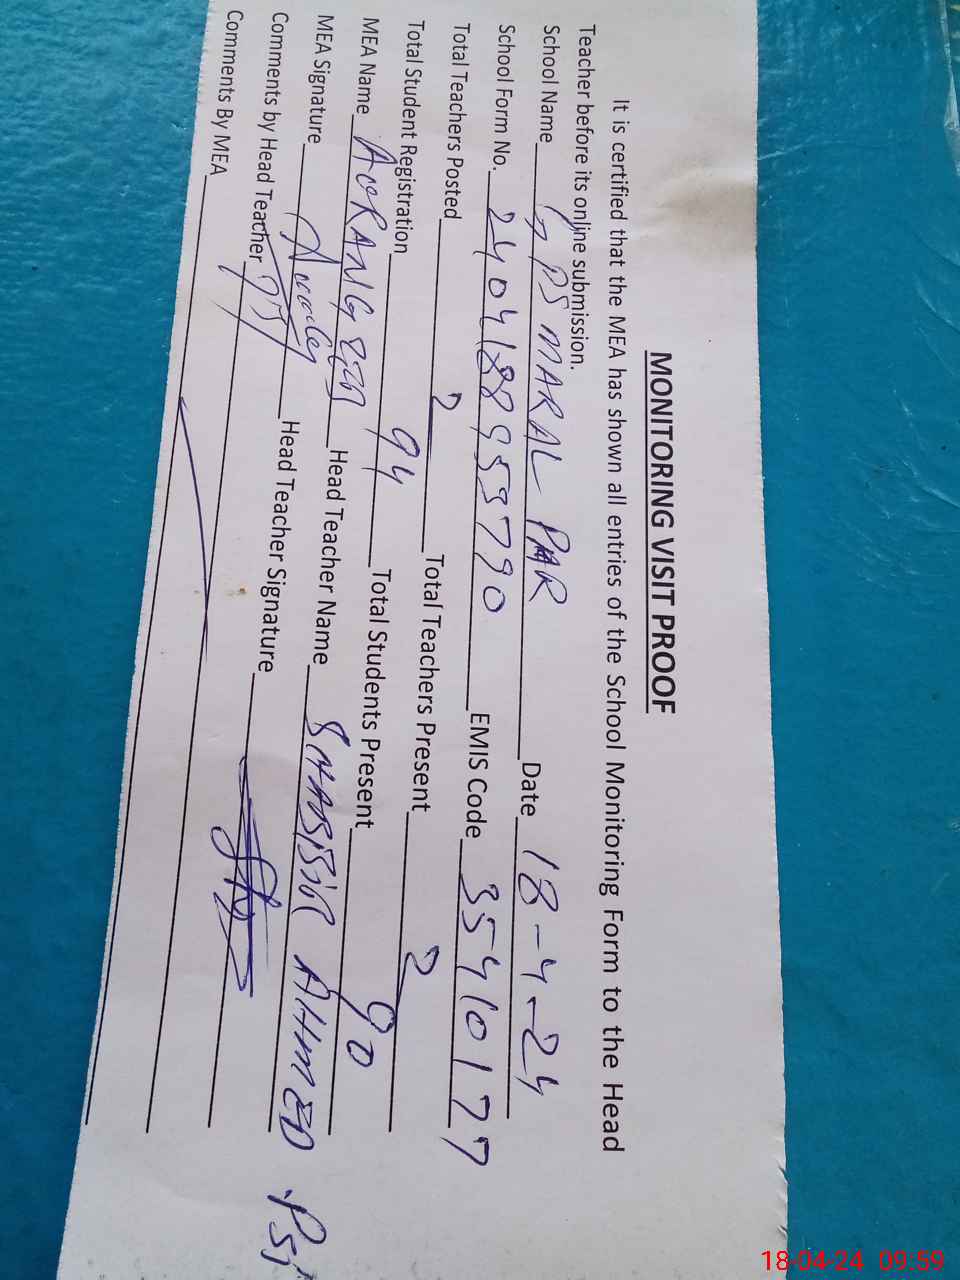 MONITORING VISIT PROOF
It is certified that the MEA has shown all entries of the School Monitoring Form to the Head
Teacher before its online submission.
School Name GPS MARAL PAAR Date 18-4-24
School Form No. 24041889559790 EMIS Code 35410177
Total Teachers Posted 2 Total Teachers Present 2
Total Student Registration 94 Total Students Present 90
MEA Name AORANGZEB Head Teacher Name SHABBIR AHMED PST
MEA Signature Head Teacher Signature
Comments by Head Teacher
Comments By MEA
18-04-24 09:59